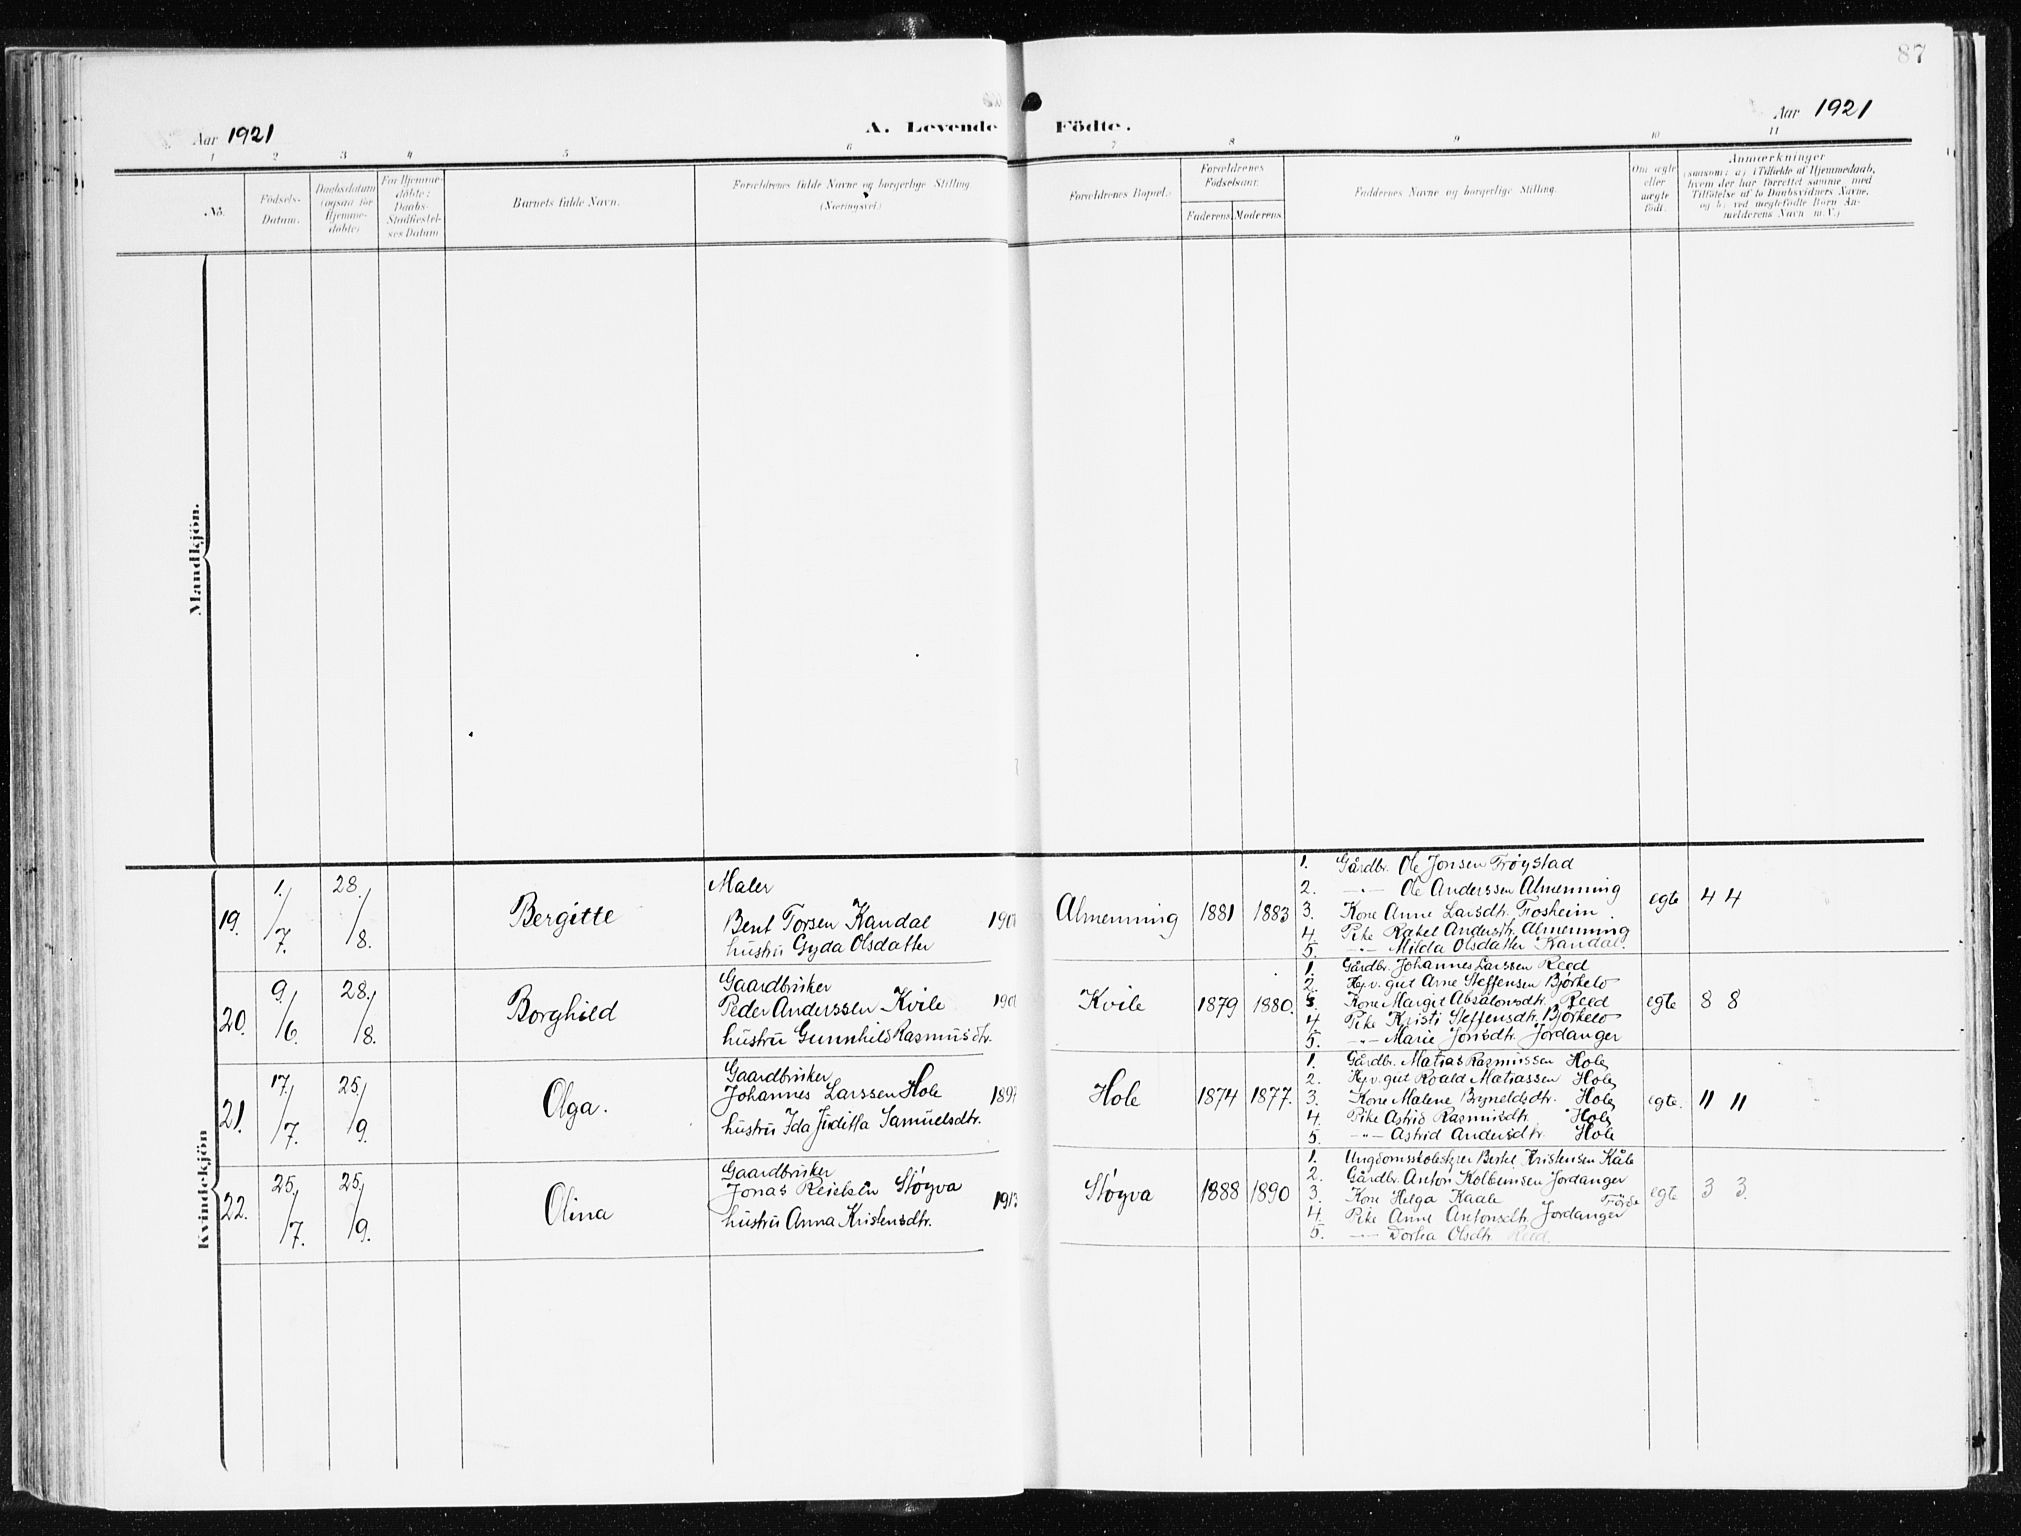 87
Aar 1921
A. Levende Födte.
Aar 1921
1 2 3 4 5 6 7 8 9 10 11
No.
Födsels-
Datum.
Daabsdatum
(ogsaa for
Hjemme-
döbte)
For Hjemme-
döbte:
Daabs
Stadfæstel-
ses Datum
Barnets fulde Navn.
Forældrenes fulde Navne og borgerlige Stilling
(Næringsvei)
Forældrenes Bopæl.
Forældrenes
Födselsaar.
Faderens. Moderens.
Faddernes Navne og borgerlige Stilling.
Om ægte
eller
uægte
födt.
Anmærkninger
(saasom: a) i Tilfælde af Hjemmedaab,
hvem der har forrettet samme, med
Tilföielse af to Daabsvidners Navne,
og b) ved uægtefödte Börn An-
melderens Navn m. V.)
Mandkjön.
Kvindekjön
19. 1/7. 28/8. Bergitte
Maler
Bent Torsen Kandal
hustru Gyda Olsdatter
Almenning 1881 1883
1. Gårdbr. Ole Jonsen Frøystad
2. —"— Ole Anderssen Almenning
3. Kone Anne Larsdtr. Fosheim.
4. Pike Rakel Andersdtr. Almenning
5. —"— Milda Olsdatter Kandal.
egte 4 4
20. 9/6. 28/8. Borghild
Gaardbruker
Peder Anderssen Kvile
hustru Gunnhild Rasmusdtr.
Kvile 1879 1880.
1. Gårdbr. Johannes Larssen Reed
2. Hjv. gut Arne Steffensen Bjørkelo
3. Kone Margit Absalonsdtr. Reed
4. Pike Kristi Steffensdtr. Bjørkelo
5. —"— Marie Jonsdtr. Jordanger
egte 8 8
21. 17/7. 25/9. Olga.
Gaardbruker
Johannes Larssen Hole
hustru Ida Juditta Samuelsdtr.
Hole 1874 1877.
1. Gårdbr. Matias Rasmussen Hole
2. Hjv. gut Roald Matiassen Hole
3. Kone Malene Bryneldsdtr. Hole
4. Pike Astrid Rasmusdtr. Hole
5. —"— Astrid Andersdtr. Hole
egte. 11 11
22. 25/7. 25/9. Olina
Gaardbruker
Jonas Støyva
hustru Anna Kristensdtr.
Støyva 1888 1890
1. Ungdomsskolestyrer Bertel Kristensen Kåle
2. Gårdbr. Anton Kolbeinsen Jordanger
3. Kone Helga Kaale Førde
4. Pike Anne Antonsdtr. Jordanger
5. —"— Dortea Olsdtr. Reed
egte 3 3.